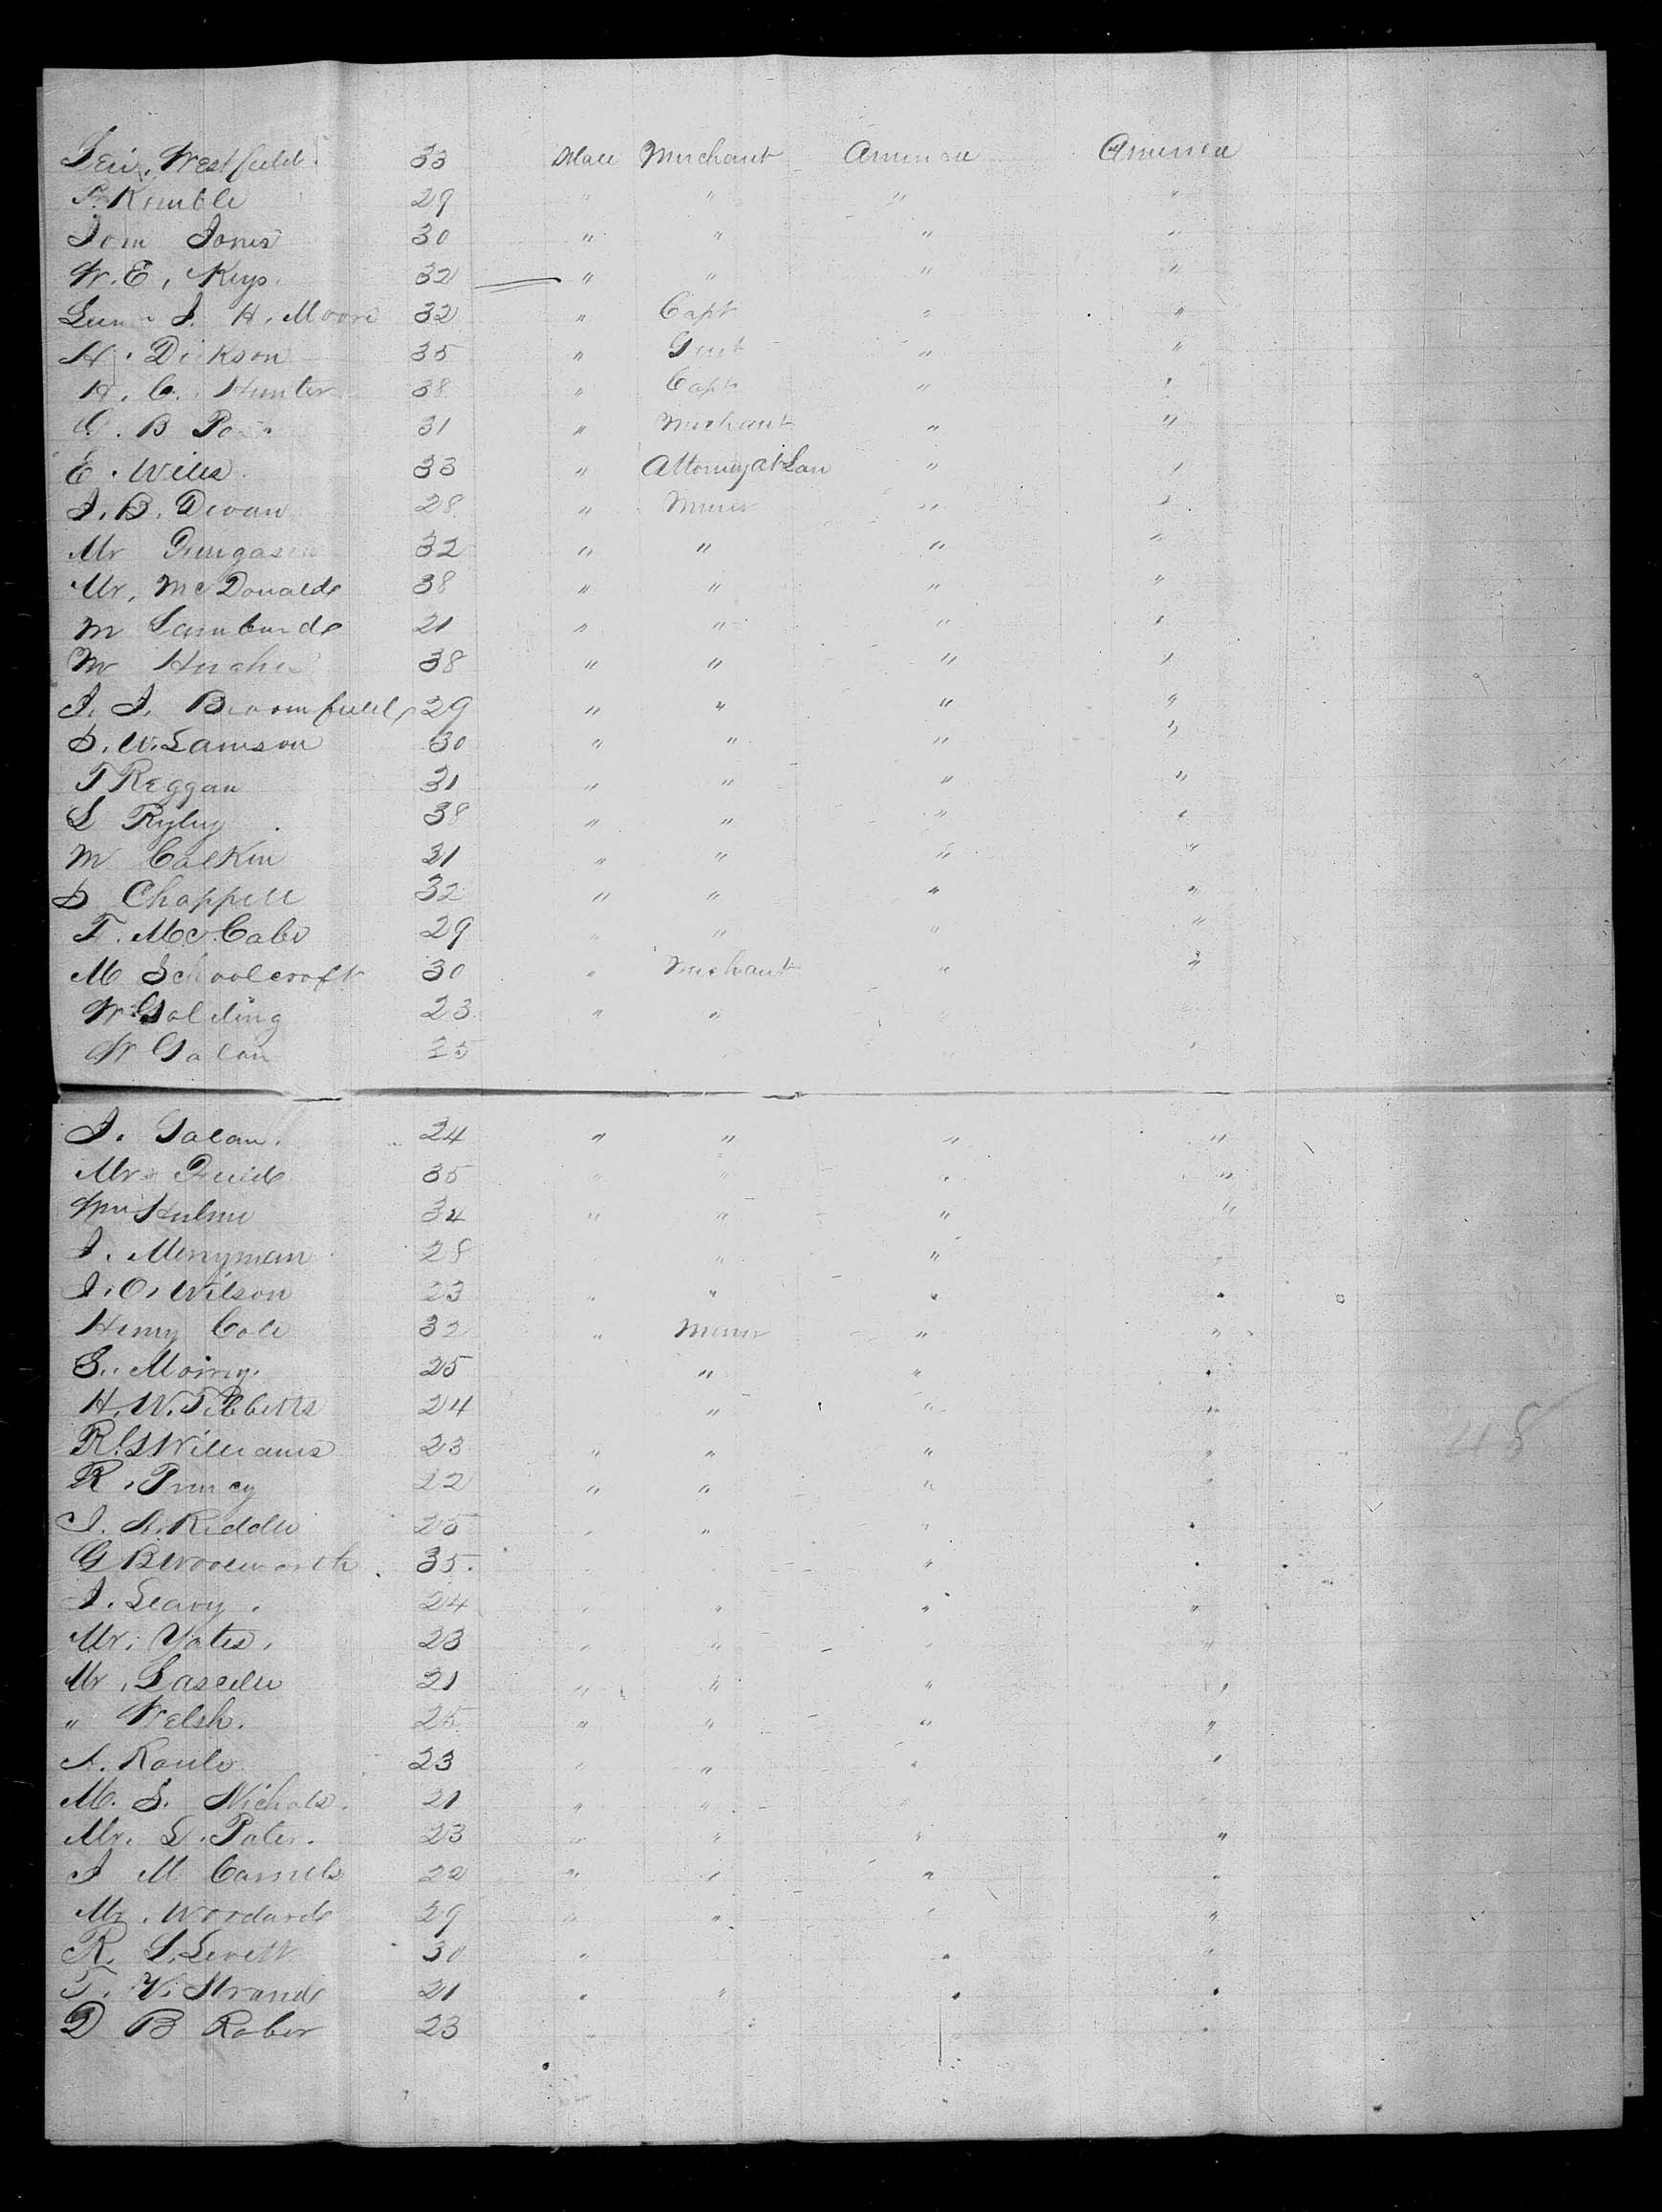 Westfield. 33 Male Merchant America America
Kimble 29 " " " "
Tom Jones 30 " " " "
W. E. Keys. 32 " " " "
J. H. Moore 32 " Capt " "
H. Dickson 35 " Gent " "
H. C. Hunter 38 " Capt " "
B 31 " Merchant " "
E. Wills 33 " Attorney at Law " "
J. B. Devan 28 " Miner " "
Mr 32 " " " "
Mr. McDonald 38 " " " "
M 21 " " " "
Mr Hughes 38 " " " "
J. J. Broomfield 29 " " " "
S. W. Lamson 30 " " " "
T Reggan 31 " " " "
L Ryley 38 " " " "
M Calkin 31 " " " "
S Chappell 32 " " " "
T. McCabe 29 " " " "
M Schoolcroft 30 " Merchant " "
W Golding 23 " "
W Galan 25 "
J. Galan. 24 " " " "
Mr 35 " " " "
Wm Hulme 34 " " " "
J. Merryman 28 " "
J. O. Wilson 23 " " " "
Henry Cole 32 " Miner " "
S. 25 " " "
H. W. Tibbetts 24 " " "
Williams 23 " " " "
R. 22 " " " "
J. A. Riddle 25 " " " "
G B Woolworth 35. " "
J. Leary. 24 " " " "
Mr. Yates. 23 " " " "
Mr. 21 " " " "
" Welsh. 25 " " " "
A. 23 " " " "
M. S. Nichols. 21 " "
Mr. 23 " " " "
J M 22 " " " "
Mr. Woodard 29 " " " "
R. S. Levett 30 " " "
T. V. Strand 21 " " " "
D B Rober 23 " "
48